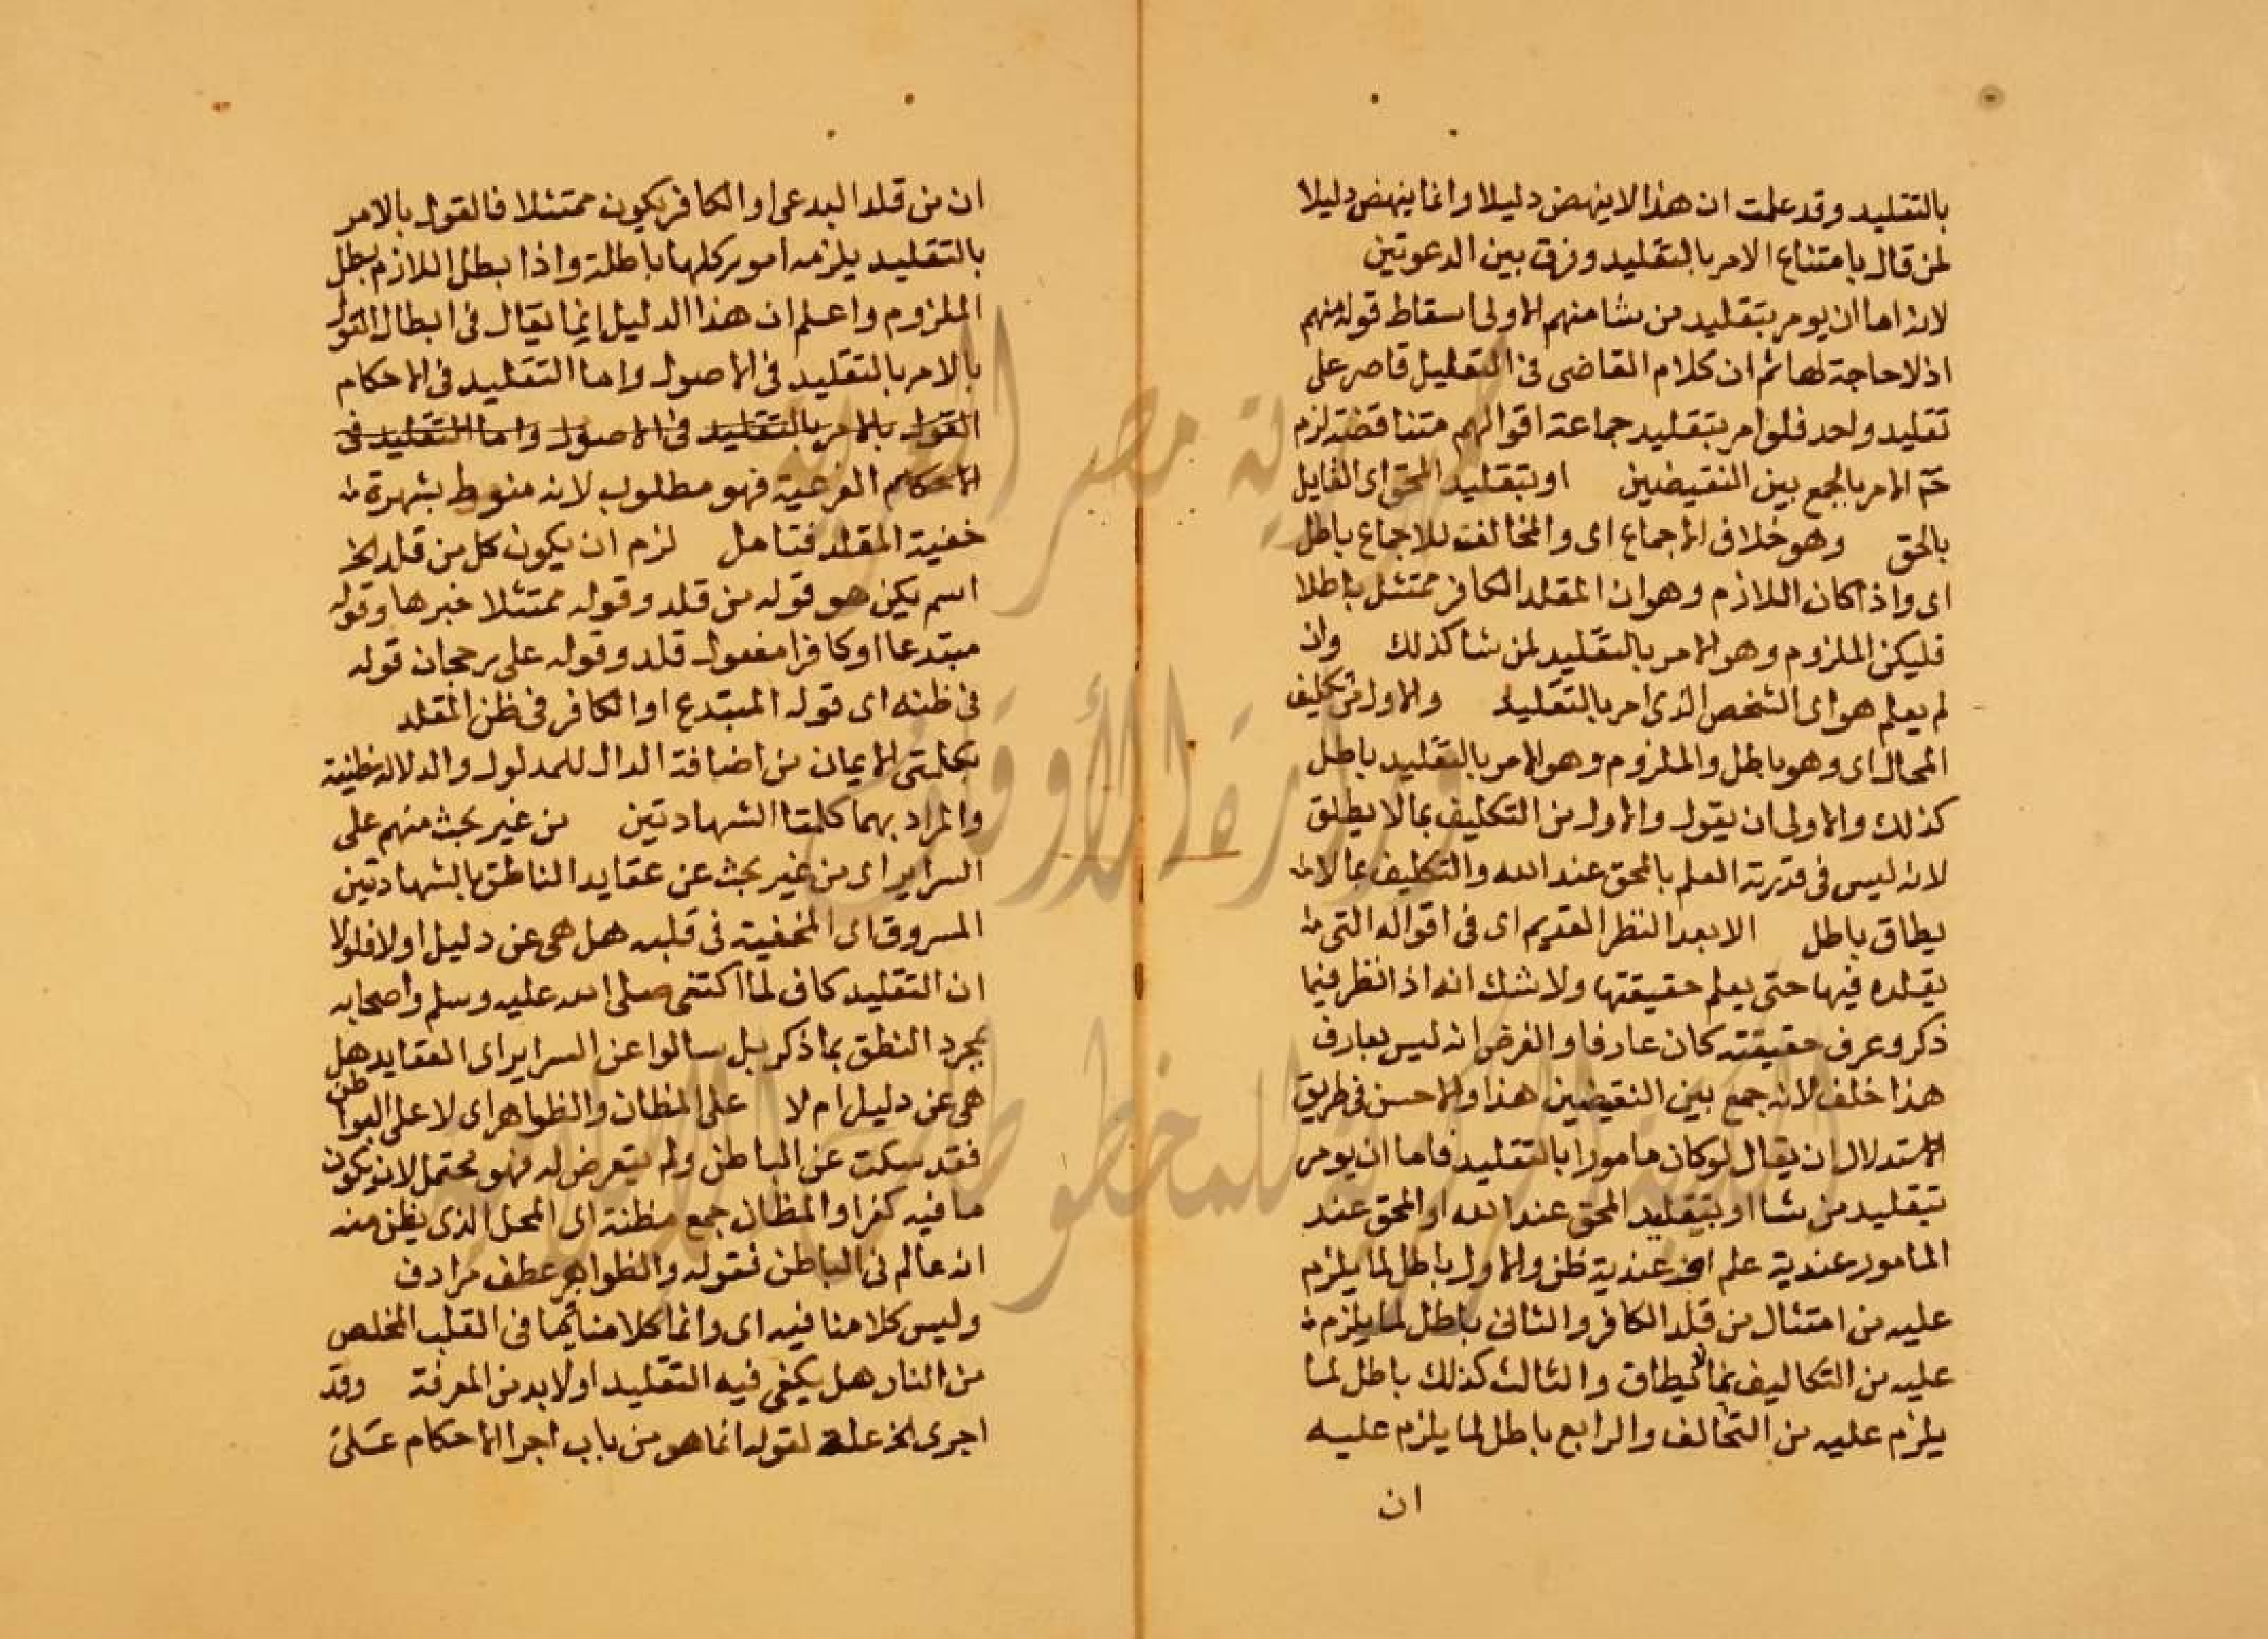 بالتقليد وقد علمت ان هذا لا ينهض دليلا وانما ينهض دليلا
لمن قال بامتناع الامر بالتقليد وفرق بين الدعوتين
لانه اما ان يومر بتقليد من شا منهم الاولى اسقاط قوله منهم
اذ لا حاجة لها ثم ان كلام القاضى فى التعليل قاصر على
تقليد واحد فلو امر بتقليد جماعة اقوالهم متناقضة لزم
الامر بالجمع بين النقيضين او بتقليد المحق اى القايل
بالحق وهو خلاف الاجماع اى والمخالفت للاجماع باطل
اى واذا كان اللازم وهو ان المقلد الكافر ممتثل باطلا
فليكن الملزوم وهو الامر بالتقليد لمن شا كذلك وان
لم يعلم هو اى الشخص الذى امر بالتقليد والاول من تكليف
المحال اى وهو باطل والملزوم وهو الامر بالتقليد باطل
كذلك والاولى ان يقول والاول من التكليف بما لا يطاق
لانه ليس فى قدرته العلم بالمحق عند الله والتكليف بما لا
يطاق باطل الا بعد النظر القديم اى فى اقواله التى
يقلده فيها حتى يعلم حقيقتها ولا شك انه اذا نظر فيما
ذكر وعرف حقيقته كان عارفا والفرض انه ليس بعارف
هذا خلف لانه جمع بين النقيضين هذا والاحسن فى طريق
الاستدلال ان يقال لو كان مامورا بالتقليد فاما ان يومر
بتقليد من شا او بتقليد المحق عند الله او المحق عند
المامور عندية علم او عندية ظن والاول باطل لما يلزم
عليه من امتثال من قلد الكافر والثانى باطل لما يلزم
عليه من التكاليف بما لا يطاق والثالث كذلك باطل لما
يلزم عليه من التخالف والرابع باطل لما يلزم عليه
ان
ان من قلد البدعى او الكافر يكون ممتثلا فالقول بالامر
بالتقليد يلزمه امور كلها باطلة واذا بطل اللازم بطل
الملزوم واعلم ان هذا الدليل انما يقال فى ابطال القول
بالامر بالتقليد فى الاصول واما التقليد فى الاحكام
القول بالامر بالتقليد فى الاصول واما التقليد فى
الاحكام الفرعية فهو مطلوب لانه منوط بشهرة
خفية المقلد فتامل لزم ان يكون كل من قلد الخ
اسم يكن هو قوله من قلد وقوله ممتثلا خبرها وقوله
مبتدعا او كافرا مفعول قلد وقوله على رجحان قوله
فى ظنه اى قوله المبتدع او الكافر فى ظن المقلد
بكلمتى الايمان من اضافة الدال للمدلول والدلالة ظنية
والمراد بهما كلمتا الشهادتين من غير بحث منهم على
السراير اى من غير بحث عن عقايد الناطق بالشهادتين
المسروق اى المخفية فى قلبه هل هى عن دليل او لا فلولا
ان التقليد كاف لما اكتفى صلى الله عليه وسلم واصحابه
بمجرد النطق بما ذكر بل سالوا عن السراير اى العقايد هل
هى عن دليل ام لا على المظان والظواهر اى لا على البواطن
فقد سكت عن الباطن ولم يتعرض له فهو محتمل لان يكون
ما فيه كفرا والمظان جمع مظنة اى المحل الذى يظن منه
انه عالم فى الباطن فقوله والظواهر عطف مرادف
وليس كلامنا فيه اى وانما كلامنا فيما فى القلب المخلص
من النار هل يكفى فيه التقليد او لا بد من المعرفة وقد
اجرى الخ علة لقوله انما هو من باب اجرا الاحكام على